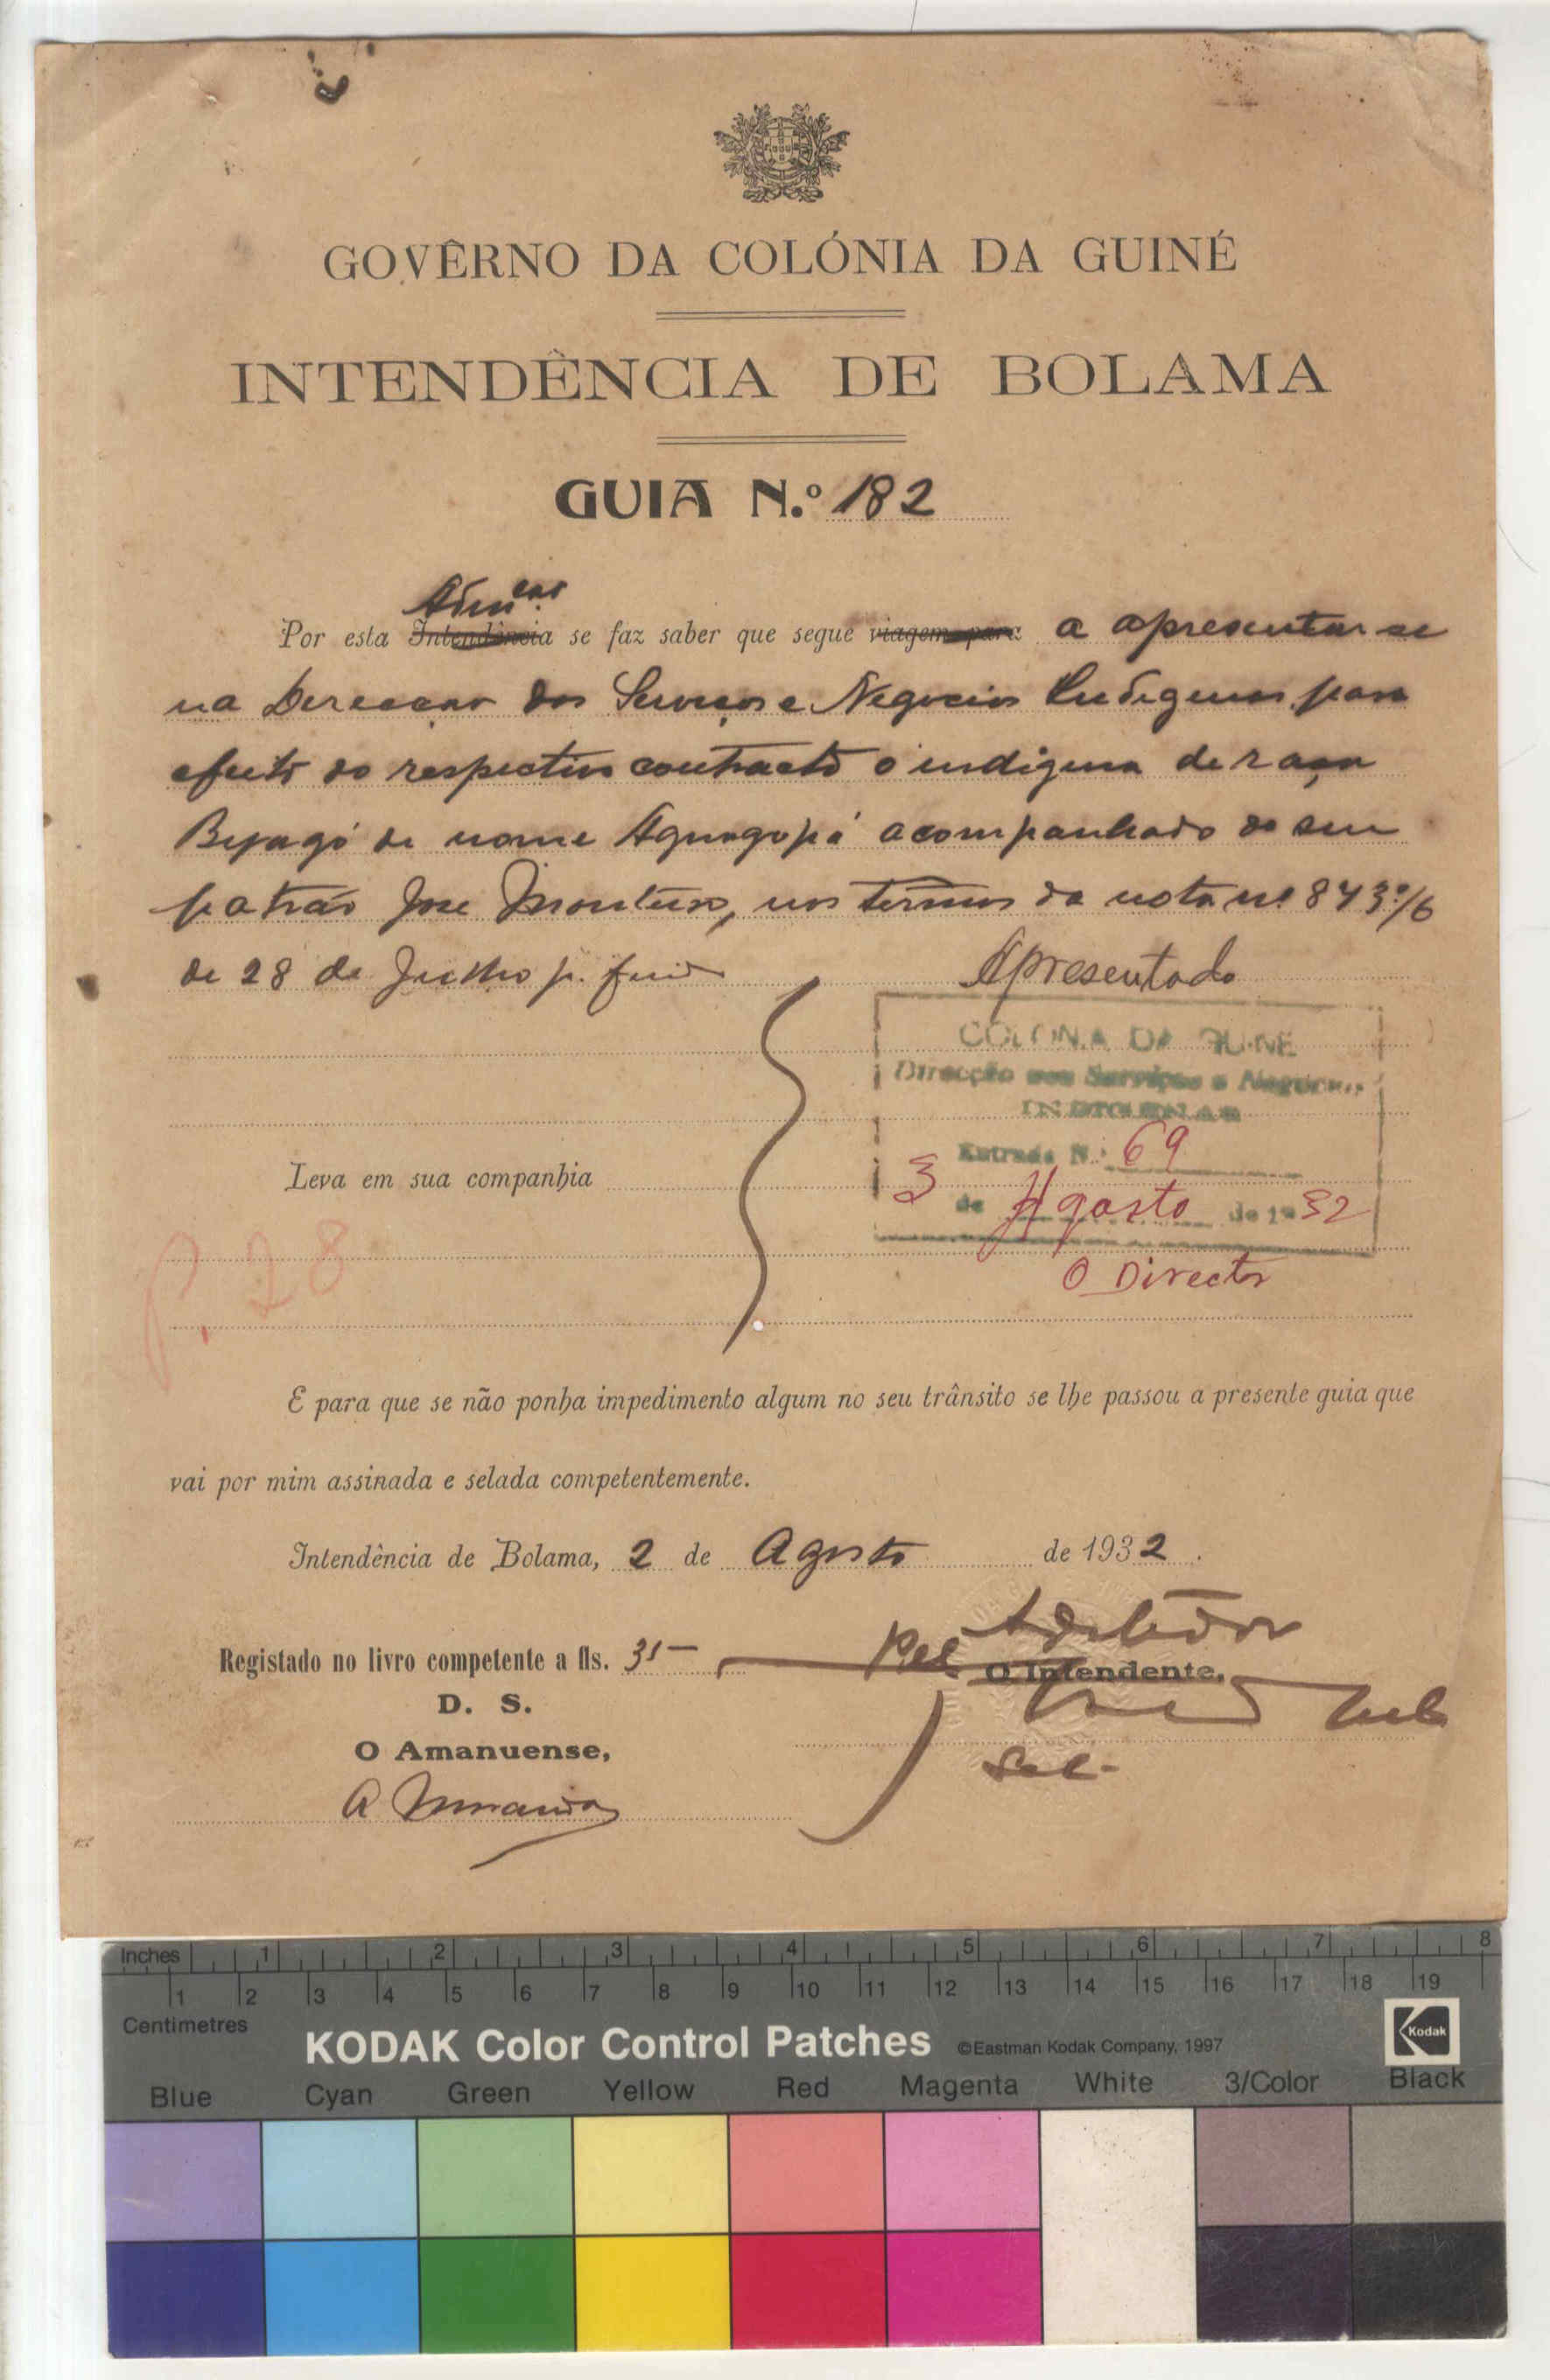 GOVÊRNO DA COLÓNIA DA GUINÉ
INTENDÊNCIA DE BOLAMA
GUIA N.º 182
Admcao
Por esta Intendência se faz saber que segue viagem para a apresentar-se
na Direcção dos Serviços e Negocios Indigenas para
efeito do respectivo contracto o indigena de raça
Byagó de nome acompanhado do seu
patrão Jose Monteiro, nos termos da nota nº 843
de 28 de Julho p. findo
Apresentado
COLONIA DA GUINÉ
Direcção dos Serviços e Negocios
INDIGENAS
Entrada N.º 69
3 de Agosto de 1932
O Director
Leva em sua companhia
P. 28
E para que se não ponha impedimento algum no seu trânsito se lhe passou a presente guia que
vai por mim assinada e selada competentemente.
Intendência de Bolama, 2 de Agosto de 1932.
Registado no livro competente a fls. 31
Pel O Intendente,
D. S.
O Amanuense,
Inches 1 2 3 4 5 6 7 8
1 2 3 4 5 6 7 8 9 10 11 12 13 14 15 16 17 18 19
Centimetres
KODAK Color Control Patches ©Eastman Kodak Company, 1997 Kodak
Blue Cyan Green Yellow Red Magenta White 3/Color Black